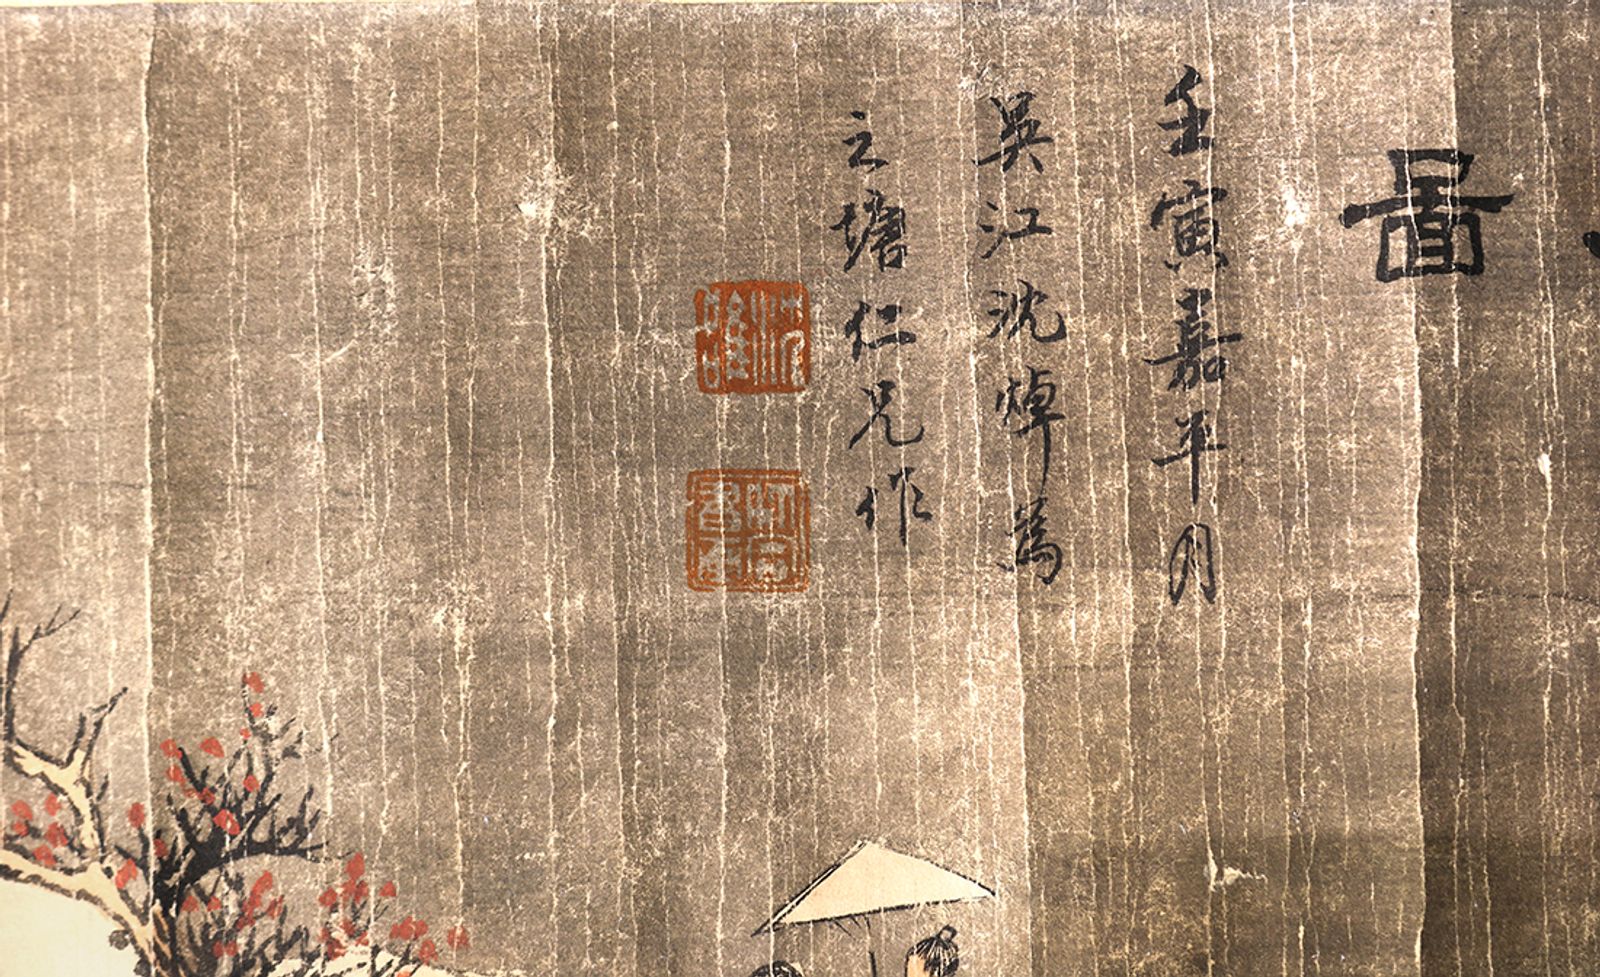 圖
壬寅嘉平月
吳江沈焯為
之塘仁兄作